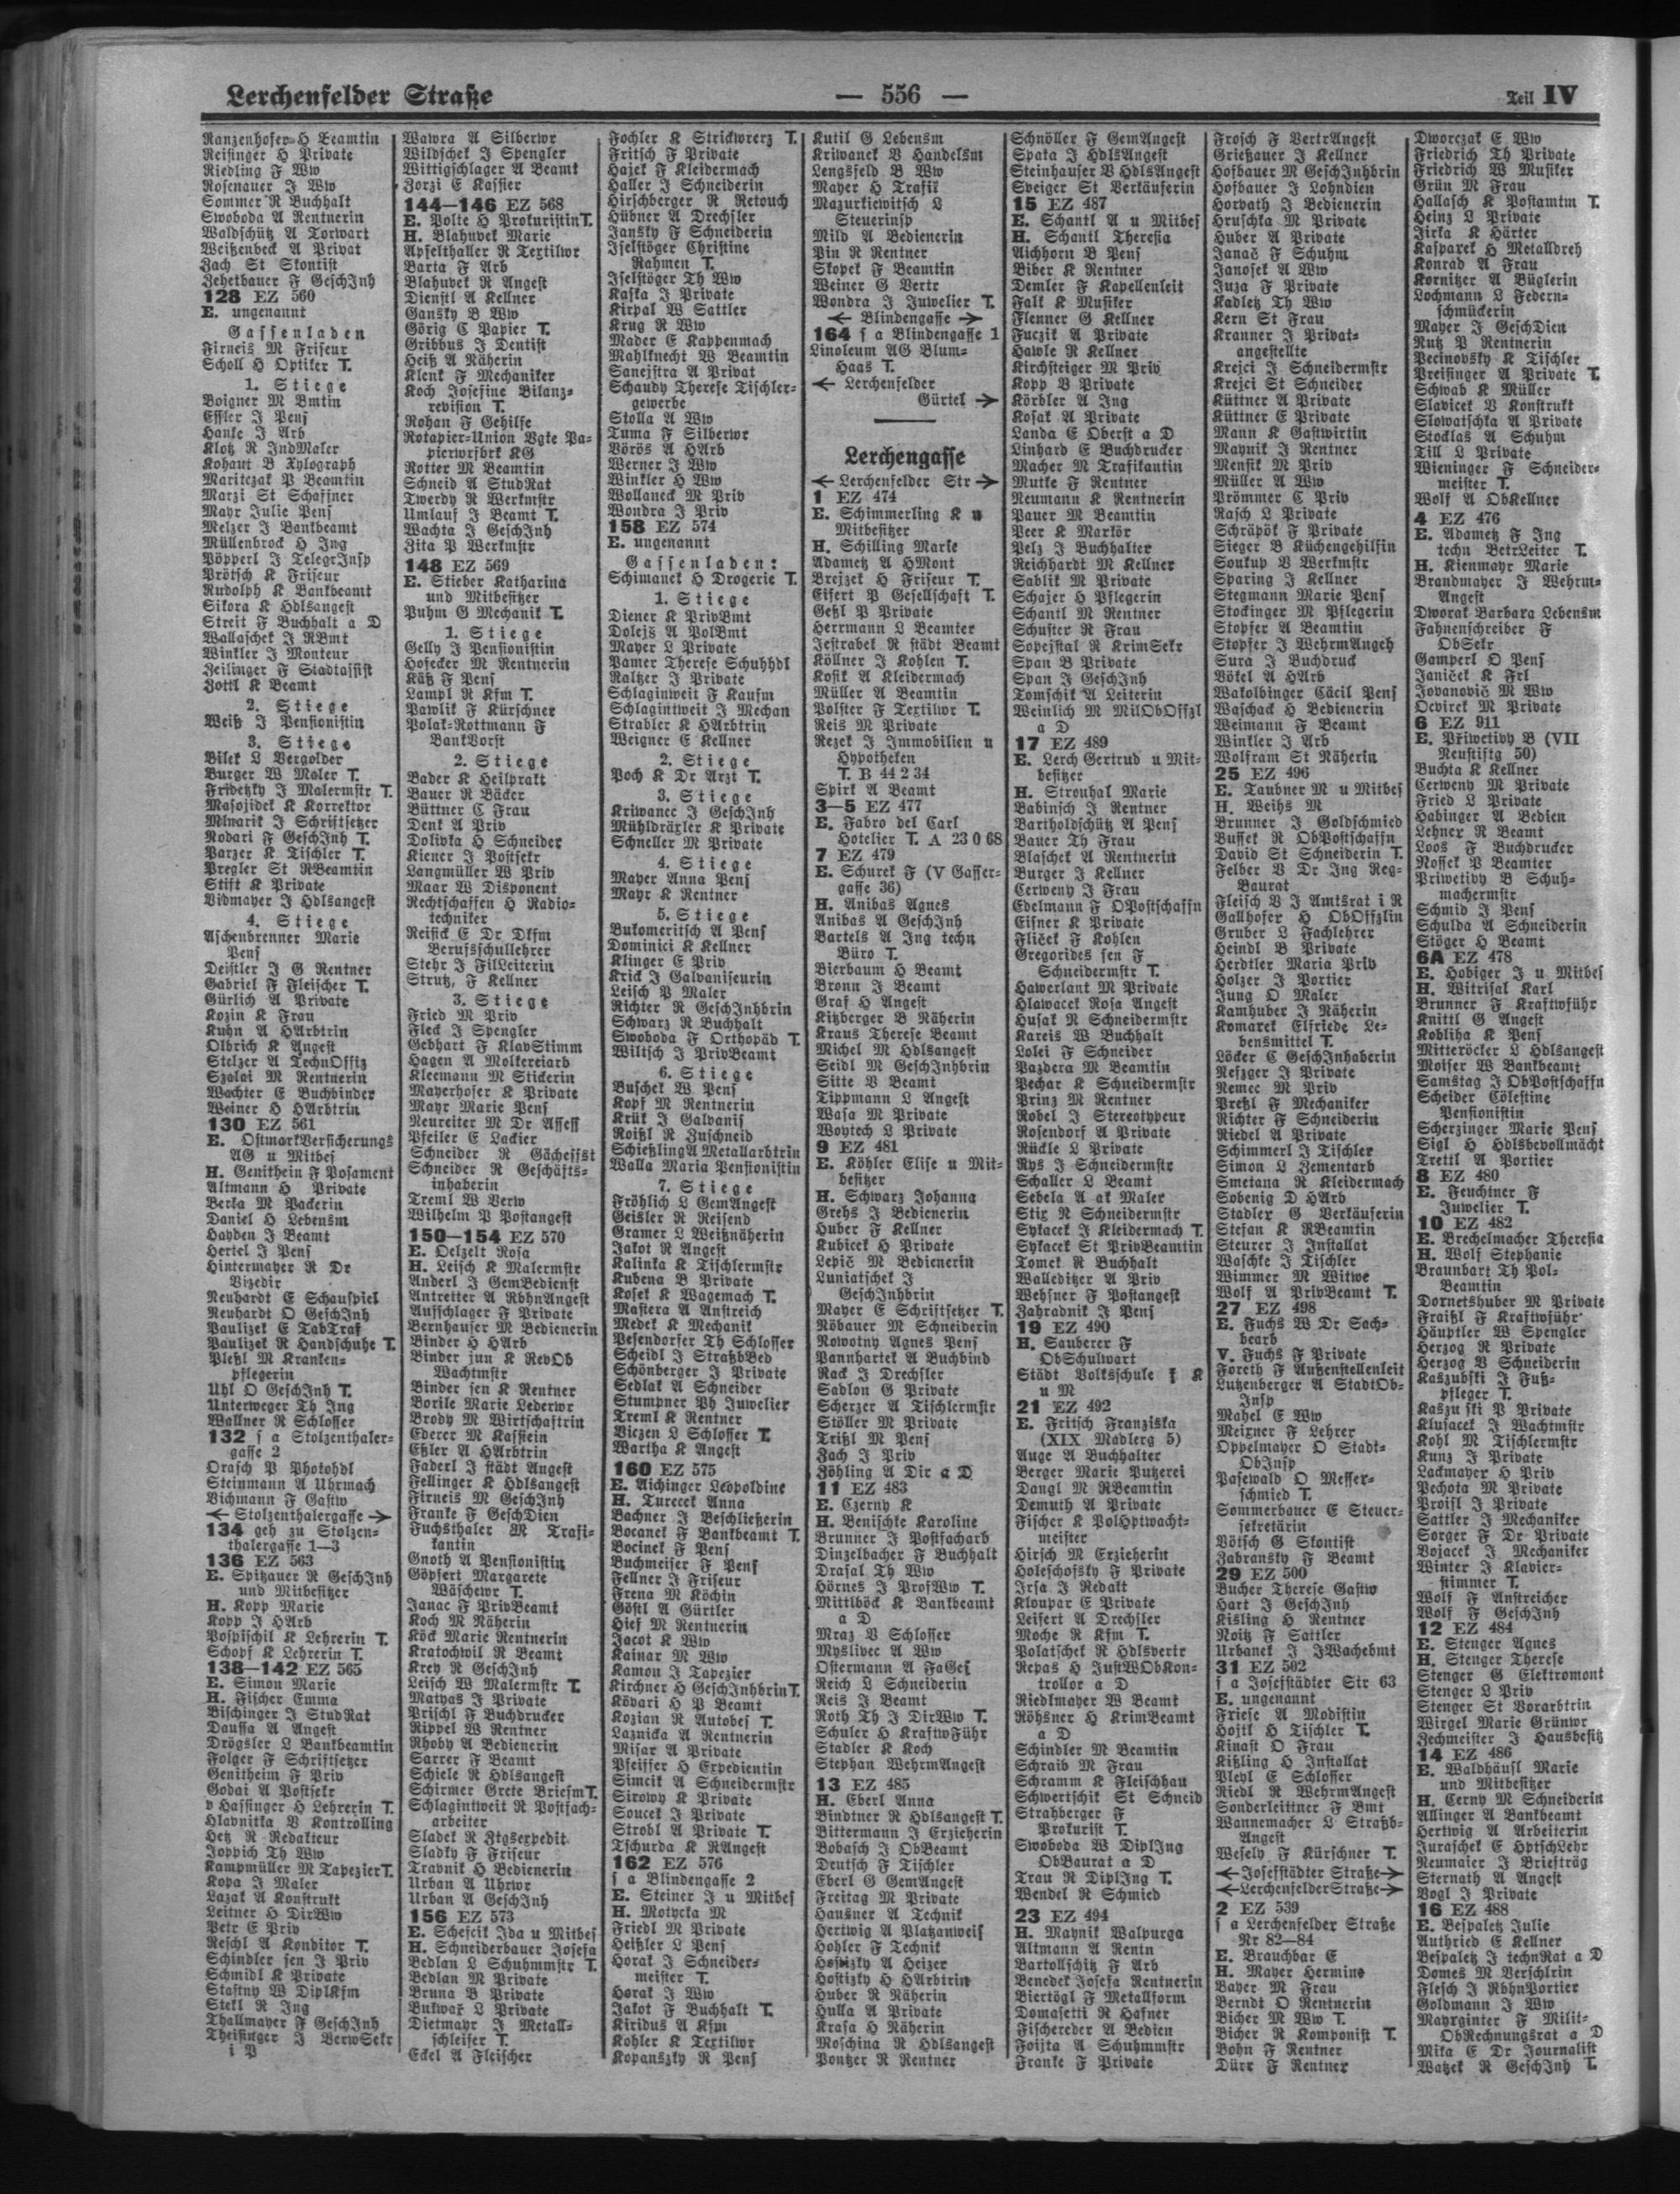 Lerchenfelder Straße
— 556 —
Teil IV
Ranzenhofer H Beamtin
Reisinger H Private
Riedling F Ww
Rosenauer J Ww
Sommer R Buchhalt
Swoboda A Rentnerin
Waldschütz A Torwart
Weißenbeck A Privat
Zach St Skontist
Zehetbauer F GeschInh
128 EZ 560
E. ungenannt
Gassenladen
Firneis M Friseur
Scholl H Optiker T.
1. Stiege
Boigner M Bmtin
Effler J Pens
Hanke J Arb
Klotz R IndMaler
Kohaut B Xylograph
Maritczak P Beamtin
Marzi St Schaffner
Mayr Julie Pens
Melzer J Bankbeamt
Müllenbrock H Ing
Pöpperl J TelegrInsp
Prötsch K Friseur
Rudolph K Bankbeamt
Sikora K Hdlsangest
Streit F Buchhalt a D
Wallaschek J RBmt
Winkler J Monteur
Zeilinger F Stadtassist
Zottl K Beamt
2. Stiege
Weiß J Pensionistin
3. Stiege
Bilek L Vergolder
Burger W Maler T.
Fridetzky J Malermstr T.
Masojidek K Korrektor
Mlwarik J Schriftsetzer
Rodari F GeschInh T.
Parzer K Tischler T.
Pregler St RBeamtin
Stift K Private
Vidmayer J Hdlsangest
4. Stiege
Aschenbrenner Marie
Pens
Deistler J G Rentner
Gabriel F Fleischer T.
Gürlich A Private
Kozin K Frau
Kuhn A HArbtrin
Olbrich K Angest
Stelzer A TechnOffiz
Szalai M Rentnerin
Wachter E Buchbinder
Weiner H HArbtrin
130 EZ 561
E. OstmarkVersicherungs
AG u Mitbes
H. Genithein F Posament
Altmann H Private
Berka M Packerin
Daniel H Lebensm
Hayden J Beamt
Hertel J Pens
Hintermayer R Dr
Vizedir
Neuhardt E Schauspiel
Neuhardt O GeschInh
Paulizek E TabTraf
Paulizek R Handschuhe T.
Pleßl M Kranken-
pflegerin
Uhl O GeschInh T.
Unterweger Th Ing
Wallner R Schlosser
132 s a Stolzenthaler-
gasse 2
Orasch P Photohdl
Steinmann A Uhrmach
Vichmann F Gastw
← Stolzenthalergasse →
134 geh zu Stolzen-
thalergasse 1—3
136 EZ 563
E. Spitzauer R GeschInh
und Mitbesitzer
H. Kopp Marie
Kopp J HArb
Pospischil K Lehrerin T.
Schopf K Lehrerin T.
138—142 EZ 565
E. Simon Marie
H. Fischer Emma
Bischinger J StudRat
Daussa A Angest
Drögsler L Bankbeamtin
Folger F Schriftsetzer
Genitheim F Priv
Godai A Postsekr
v Hassinger H Lehrerin T.
Hlavnitka V Kontrolling
Hetz R Redakteur
Joppich Th Ww
Kampmüller M Tapezier T.
Kopa J Maler
Lazak A Konstrukt
Leitner H DirWw
Petr E Priv
Reschl A Konditor T.
Schindler sen J Priv
Schmidl K Private
Stastny W DiplKfm
Stekl R Ing
Thallmayer F GeschInh
Theisinger J VerwSekr
i P
Wawra A Silberwr
Wildschek J Spengler
Wittigschlager A Beamt
Zorzi E Kassier
144—146 EZ 568
E. Polte H Prokuristin T.
H. Blahuvek Marie
Apfelthaller R Textilwr
Barta F Arb
Blahuvek R Angest
Dienstl A Kellner
Gansky B Ww
Görig C Papier T.
Gribbus J Dentist
Heiß A Näherin
Klenk F Mechaniker
Koch Josefine Bilanz-
revision T.
Rohan F Gehilfe
Rotapier-Union Vgte Pa-
pierwrfbrk KG
Rotter M Beamtin
Schneid A StudRat
Twerdy R Werkmstr
Umlauf J Beamt T.
Wachta J GeschInh
Zita P Werkmstr
148 EZ 569
E. Stieber Katharina
und Mitbesitzer
Puhm G Mechanik T.
1. Stiege
Gelly J Pensionistin
Hofecker M Rentnerin
Käß F Pens
Lampl R Kfm T.
Pawlik F Kürschner
Polak-Rottmann F
BankVorst
2. Stiege
Bader K Heilprakt
Bauer R Bäcker
Büttner C Frau
Denk A Priv
Dolivka H Schneider
Kiener J Postsekr
Langmüller W Priv
Maar W Disponent
Rechtschaffen H Radio-
techniker
Reisick E Dr Dkfm
Berufsschullehrer
Stehr J FilLeiterin
Strutz, F Kellner
3. Stiege
Fried M Priv
Fleck J Spengler
Gebhart F KlavStimm
Hagen A Molkereiarb
Kleemann M Stickerin
Mayerhofer K Private
Mayr Marie Pens
Neureiter M Dr Assess
Pfeiler E Lackier
Schneider R Gächeffst
Schneider R Geschäfts-
inhaberin
Treml W Verw
Wilhelm P Postangest
150—154 EZ 570
E. Oelzelt Rosa
H. Leisch K Malermstr
Anderl J GemBedienst
Antretter A RbhnAngest
Aufschlager F Private
Bernhauser M Bedienerin
Binder H HArb
Binder jun K RevOb
Wachtmstr
Binder sen K Rentner
Borile Marie Lederwr
Brody M Wirtschaftrin
Ederer M Kassiein
Etzler A HArbtrin
Faderl J städt Angest
Fellinger K Hdlsangest
Firneis M GeschInh
Franke F GeschDien
Fuchsthaler M Trafi-
kantin
Gnoth A Pensionistin
Göpfert Margarete
Wäschewr T.
Janac F PrivBeamt
Koch M Näherin
Köck Marie Rentnerin
Kratochwil R Beamt
Krey R GeschInh
Leisch W Malermstr T.
Matyas J Private
Prischl F Buchdrucker
Rippel W Rentner
Rhoby A Bedienerin
Sarrer F Beamt
Schiele R Hdlsangest
Schirmer Grete Briefm T.
Schlagintweit R Postfach-
arbeiter
Sladek R Ztgsexpedit
Sladky F Friseur
Travnik H Bedienerin
Urban A Uhrwr
Urban A GeschInh
156 EZ 573
E. Schefcik Ida u Mitbes
H. Schneiderbauer Josefa
Bedlan L Schuhmmstr T.
Bedlan M Private
Bruna B Private
Bukwař L Private
Dietmayr J Metall-
schleifer T.
Eckel A Fleischer
Fochler K Strickwrerz T.
Fritsch F Private
Hajek F Kleidermach
Haller J Schneiderin
Hirschberger R Retouch
Hübner A Drechsler
Jansky F Schneiderin
Iselstöger Christine
Rahmen T.
Iselstöger Th Ww
Kaska J Private
Kirpal W Sattler
Krug R Ww
Mader E Kappenmach
Mahlknecht W Beamtin
Sanejstra A Privat
Schaudy Therese Tischler-
gewerbe
Stolla A Ww
Tuma F Silberwr
Vörös A HArb
Werner J Ww
Winkler H Ww
Wollaneck M Priv
Wondra J Priv
158 EZ 574
E. ungenannt
Gassenladen:
Schimanek H Drogerie T.
1. Stiege
Diener K PrivBmt
Dolejš A PolBmt
Mayer L Private
Pamer Therese Schuhhdl
Raltzer J Private
Schlaginweit F Kaufm
Schlagintweit J Mechan
Strabler K HArbtrin
Weigner E Kellner
2. Stiege
Poch K Dr Arzt T.
3. Stiege
Kriwanec J GeschInh
Mühldräxler K Private
Schneller M Private
4. Stiege
Mayer Anna Pens
Mayr K Rentner
5. Stiege
Bukomeritsch A Pens
Dominici K Kellner
Klinger E Priv
Krick J Galvaniseurin
Leisch P Maler
Richter R GeschInhbrin
Schwarz R Buchhalt
Swoboda F Orthopäd T.
Wiltsch J PrivBeamt
6. Stiege
Buschek W Pens
Kopf M Rentnerin
Krük J Galvanis
Roißl R Zuschneid
Schießling A Metallarbtrin
Walla Maria Pensionistin
7. Stiege
Fröhlich L GemAngest
Geisler R Reisend
Gramer L Weißnäherin
Jakot R Angest
Kalinka K Tischlermstr
Kubena B Private
Kosek K Wagemach T.
Mastera A Anstreich
Medek K Mechanik
Pesendorfer Th Schlosser
Scheidl J StraßbBed
Schönberger J Private
Sedlak A Schneider
Stumpner Ph Juwelier
Treml K Rentner
Viezen L Schlosser T.
Wartha K Angest
160 EZ 575
E. Aichinger Leopoldine
H. Turecek Anna
Bachner J Beschließerin
Bocanek F Bankbeamt T.
Bocinek F Pens
Buchmeiser F Pens
Fellner J Friseur
Frena M Köchin
Göstl A Gürtler
Hief M Rentnerin
Jacot K Ww
Kainar M Ww
Kamon J Tapezier
Kirchner H GeschInhbrin T.
Kövari H P Beamt
Kozian R Autobes T.
Laznicka A Rentnerin
Misar A Private
Pfeiffer H Expedientin
Simcik A Schneidermstr
Sirowy K Private
Soucek J Private
Strobl A Private T.
Tschurda K RAngest
162 EZ 576
s a Blindengasse 2
E. Steiner J u Mitbes
H. Motycka M
Friedl M Private
Heißler L Pens
Horak J Schneider-
meister T.
Horak J Ww
Jakot F Buchhalt T.
Kiridus A Kfm
Kohler K Textilwr
Kopanszky R Pens
Kutil G Lebensm
Kriwanek V Handelsm
Lengsfeld B Ww
Mayer H Trafik
Mazurkiewitsch L
Steuerinsp
Mild A Bedienerin
Pin R Rentner
Skopek F Beamtin
Weiner G Vertr
Wondra J Juwelier T.
← Blindengasse →
164 s a Blindengasse 1
Linoleum AG Blum-
Haas T.
← Lerchenfelder
Gürtel →
Lerchengasse
← Lerchenfelder Str →
1 EZ 474
E. Schimmerling K u
Mitbesitzer
H. Schilling Marie
Adametz A HMont
Brejzek H Friseur T.
Eifert P Gesellschaft T.
Geßl P Private
Herrmann L Beamter
Jestrabek R städt Beamt
Köllner J Kohlen T.
Kosik A Kleidermach
Müller A Beamtin
Polster F Textilwr T.
Reis M Private
Rezek J Immobilien u
Hypotheken
T. B 44 2 34
Spirk A Beamt
3—5 EZ 477
E. Fabro del Carl
Hotelier T. A 23 0 68
7 EZ 479
E. Schurek F (V Gasser-
gasse 36)
H. Anibas Agnes
Anibas A GeschInh
Bartels A Ing techn
Büro T.
Bierbaum H Beamt
Bronn J Beamt
Graf H Angest
Kitzberger B Näherin
Kraus Therese Beamt
Michel M Hdlsangest
Seidl M GeschInhbrin
Sitte V Beamt
Tippmann L Angest
Wasa M Private
Woytech L Private
9 EZ 481
E. Köhler Elise u Mit-
besitzer
H. Schwarz Johanna
Grehs J Bedienerin
Huber F Kellner
Kubicek H Private
Lepič M Bedienerin
Luniatschek J
GeschInhbrin
Mayer E Schriftsetzer T.
Röbauer M Schneiderin
Nowotny Agnes Pens
Pannhartek A Buchbind
Rack J Drechsler
Sadlon G Private
Scherzer A Tischlermstr
Stöller M Private
Trißl M Pens
Zach J Priv
Zöhling A Dir a D
11 EZ 483
E. Czerny K
H. Benischke Karoline
Brunner J Postfacharb
Dinzelbacher F Buchhalt
Drasal Th Ww
Hörnes J ProfWw T.
Mittlböck K Bankbeamt
a D
Mraz V Schlosser
Myslivec A Ww
Ostermann A FaGes
Reich L Schneiderin
Reis J Beamt
Roth Th J DirWw T.
Schuler H KraftwFühr
Stadler K Koch
Stephan WehrmAngest
13 EZ 485
H. Eberl Anna
Bindtner R Hdlsangest T.
Bittermann J Erzieherin
Bobasch J ObBeamt
Deutsch F Tischler
Eberl G GemAngest
Freitag M Private
Hausner A Technik
Hertwig A Platzanweis
Hohler F Technik
Hostizky A Heizer
Hostizky H HArbtrin
Huber R Näherin
Hulla A Private
Krasa H Näherin
Moschina R Hdlsangest
Pontzer R Rentner
Schnöller F GemAngest
Spata J HdlsAngest
Steinhauser V HdlsAngest
Sveiger St Verkäuferin
15 EZ 487
E. Schantl A u Mitbes
H. Schantl Theresia
Aichhorn B Pens
Biber K Rentner
Demler F Kapellenleit
Falk K Musiker
Flenner G Kellner
Fuczik A Private
Hawle R Kellner
Kirchsteiger M Priv
Kopp B Private
Körbler A Ing
Kosak A Private
Landa E Oberst a D
Linhard E Buchdrucker
Macher M Trafikantin
Mutke F Rentner
Neumann K Rentnerin
Pauer M Beamtin
Peer K Markör
Pelz J Buchhalter
Reichhardt M Kellner
Sablik M Private
Schajer H Pflegerin
Schantl M Rentner
Schuster R Frau
Sopejstal R KrimSekr
Span B Private
Span J GeschInh
Tomschik A Leiterin
Weinlich M MilObOffzl
a D
17 EZ 489
E. Lerch Gertrud u Mit-
besitzer
H. Strouhal Marie
Babinsch J Rentner
Bartholdschütz A Pens
Bauer Th Frau
Blaschek A Rentnerin
Burger J Kellner
Cerweny J Frau
Edelmann F OPostschaffn
Eisner K Private
Fliček F Kohlen
Gregorides sen F
Schneidermstr T.
Hawerlant M Private
Hlawacek Rosa Angest
Husak R Schneidermstr
Kareis W Buchhalt
Lolei F Schneider
Pazdera M Beamtin
Pechar K Schneidermstr
Prinz M Rentner
Robel J Stereotypeur
Rosendorf A Private
Rückle L Private
Rys J Schneidermstr
Schaller L Beamt
Sebela A ak Maler
Stix R Schneidermstr
Sykacek J Kleidermach T.
Sykacek St PrivBeamtin
Tomek R Buchhalt
Walleditzer A Priv
Wehsner F Postangest
Zahradnik J Pens
19 EZ 490
H. Sauberer F
ObSchulwart
Städt Volksschule f K
u M
21 EZ 492
E. Fritsch Franziska
(XIX Madlerg 5)
Auge A Buchhalter
Berger Marie Putzerei
Dangl M RBeamtin
Demuth A Private
Fischer K PolHptwacht-
meister
Hirsch M Erzieherin
Holeschofsky F Private
Irsa J Redakt
Kloupar E Private
Leifert A Drechsler
Moche R Kfm T.
Polatschek R Hdlsvertr
Repas H JustWObKon-
trollor a D
Riedlmayer W Beamt
Röhsner H KrimBeamt
a D
Schindler M Beamtin
Schraib M Frau
Schramm K Fleischhau
Schwertschik St Schneid
Strahberger F
Prokurist T.
Swoboda W DiplIng
ObBaurat a D
Trau R DiplIng T.
Wendel R Schmied
23 EZ 494
H. Maynik Walpurga
Altmann A Rentn
Bartollschitz F Arb
Benedek Josefa Rentnerin
Viertögl F Metallform
Domasetti R Hafner
Fischereder A Bedien
Foijta A Schuhmmstr
Franke F Private
Frosch F VertrAngest
Grießauer J Kellner
Hofbauer M GeschInhbrin
Hofbauer J Lohndien
Horvath J Bedienerin
Hruschka M Private
Huber A Private
Janač F Schuhm
Janosek A Ww
Juza F Private
Kadletz Th Ww
Kern St Frau
Kranner J Privat-
angestellte
Krejci J Schneidermstr
Krejci St Schneider
Küttner A Private
Küttner E Private
Mann K Gastwirtin
Maynik J Rentner
Mensik M Priv
Müller A Ww
Prömmer C Priv
Rasch L Private
Schräpök F Private
Sieger B Küchengehilfin
Soukup V Werkmstr
Sparing J Kellner
Stegmann Marie Pens
Stockinger M Pflegerin
Stopfer A Beamtin
Stopfer J WehrmAngeh
Sura J Buchdruck
Bökel A HArb
Wakolbinger Cäcil Pens
Waschack H Bedienerin
Weimann F Beamt
Winkler J Arb
Wolfram St Näherin
25 EZ 496
E. Taubner M u Mitbes
H. Weihs M
Brunner J Goldschmied
Bussek R ObPostschaffn
David St Schneiderin T.
Felber V Dr Ing Reg-
Baurat
Fleisch V J Amtsrat i R
Gallhofer H ObOffzlin
Gruber L Fachlehrer
Heindl B Private
Herdtler Maria Priv
Holzer J Portier
Jung O Maler
Kamhuber J Näherin
Komarek Elfriede Le-
bensmittel T.
Löcker C GeschInhaberin
Nefzger J Private
Nemec M Priv
Preßl F Mechaniker
Richter F Schneiderin
Riedel A Private
Schimmerl J Tischler
Simon L Zementarb
Smetana R Kleidermach
Sobenig D HArb
Stadler G Verkäuferin
Stefan K RBeamtin
Steurer J Installat
Waschke J Tischler
Wimmer M Witwe
Wolf A PrivBeamt T.
27 EZ 498
E. Fuchs W Dr Sach-
bearb
V. Fuchs F Private
Foreth F Außenstellenleit
Lutzenberger A StadtOb-
Insp
Mahel E Ww
Meixner F Lehrer
Oppelmayer O Stadt-
ObInsp
Pasewald O Messer-
schmied T.
Sommerbauer E Steuer-
sekretärin
Vötsch G Skontist
Zabransky F Beamt
29 EZ 500
Bucher Therese Gastw
Hart J GeschInh
Kisling H Rentner
Noitz F Sattler
Urbanek J JWachebmt
31 EZ 502
s a Josefstädter Str 63
E. ungenannt
Friese A Modistin
Hojtl H Tischler T.
Kinast O Frau
Kißling H Installat
Pleyl E Schlosser
Riedl R WehrmAngest
Sonderleittner F Bmt
Wannemacher L Straßb-
Angest
Wesely F Kürschner T.
← Josefstädter Straße →
← Lerchenfelder Straße →
2 EZ 539
s a Lerchenfelder Straße
Nr 82—84
E. Brauchbar E
H. Mayer Hermine
Bayer M Frau
Berndt O Rentnerin
Bicher M Ww T.
Bicher R Komponist T.
Bohn F Rentner
Dürr F Rentner
Dworczak E Ww
Friedrich Th Private
Friedrich W Musiker
Grün M Frau
Hallasch K Postamtm T.
Heinz L Private
Jirka K Härter
Kasparek H Metalldreh
Konrad A Frau
Kornitzer A Büglerin
Lochmann L Federn-
schmückerin
Mayer J GeschDien
Nutz P Rentnerin
Pecinovsky K Tischler
Preisinger A Private T.
Schwab K Müller
Slavicek V Konstrukt
Slowatschka A Private
Stocklas A Schuhm
Till L Private
Wieninger F Schneider-
meister T.
Wolf A ObKellner
4 EZ 476
E. Adametz F Ing
techn BetrLeiter T.
H. Kienmayr Marie
Brandmayer J Wehrm-
Angest
Dworak Barbara Lebensm
Fahnenschreiber F
ObSekr
Gamperl O Pens
Janiček K Frl
Jovanovič M Ww
Ocvirek M Private
6 EZ 911
E. Přiwetivy B (VII
Neustiftg 50)
Buchta K Kellner
Cerweny M Private
Fried L Private
Habinger A Bedien
Lehner R Beamt
Loos F Buchdrucker
Nossek P Beamter
Priwetivy B Schuh-
machermstr
Schmid J Pens
Schulda A Schneiderin
Stöger H Beamt
6A EZ 478
E. Hobiger J u Mitbes
H. Witrisal Karl
Brunner F Kraftwführ
Knittl G Angest
Kobliha K Pens
Mitteröcker L Hdlsangest
Moiser W Bankbeamt
Samstag J ObPostschaffn
Scheider Cölestine
Pensionistin
Scherzinger Marie Pens
Sigl H Hdlsbevollmächt
Trettl A Portier
8 EZ 480
E. Feuchtner F
Juwelier T.
10 EZ 482
E. Brechelmacher Theresia
H. Wolf Stephanie
Braunbart Th Pol-
Beamtin
Dornetshuber M Private
Fraißl F Kraftwführ
Häuptler W Spengler
Herzog R Private
Herzog V Schneiderin
Kaszubski J Fuß-
pfleger T.
Kaszu ski P Private
Klusacek J Wachtmstr
Kohl M Tischlermstr
Kunz J Private
Lackmayer H Priv
Pechota M Private
Proisl J Private
Sattler J Mechaniker
Sorger F Dr Private
Vojacek J Mechaniker
Winter J Klavier-
stimmer T.
Wolf F Anstreicher
Wolf F GeschInh
12 EZ 484
E. Stenger Agnes
H. Stenger Therese
Stenger G Elektromont
Stenger L Priv
Stenger St Vorarbtrin
Wirgel Marie Grünwr
Zechmeister J Hausbesitz
14 EZ 486
E. Waldhäusl Marie
und Mitbesitzer
H. Cerny M Schneiderin
Allinger A Bankbeamt
Hertwig A Arbeiterin
Juraschek E HptschLehr
Neumaier J Briefträg
Sternath A Angest
Vogl J Private
16 EZ 488
E. Bespaletz Julie
Authried E Kellner
Bespaletz J technRat a D
Domes M Verschlrin
Flesch J RbhnPortier
Goldmann J Ww
Mayrginter F Milit-
ObRechnungsrat a D
Mika E Dr Journalist
Watzek R GeschInh T.